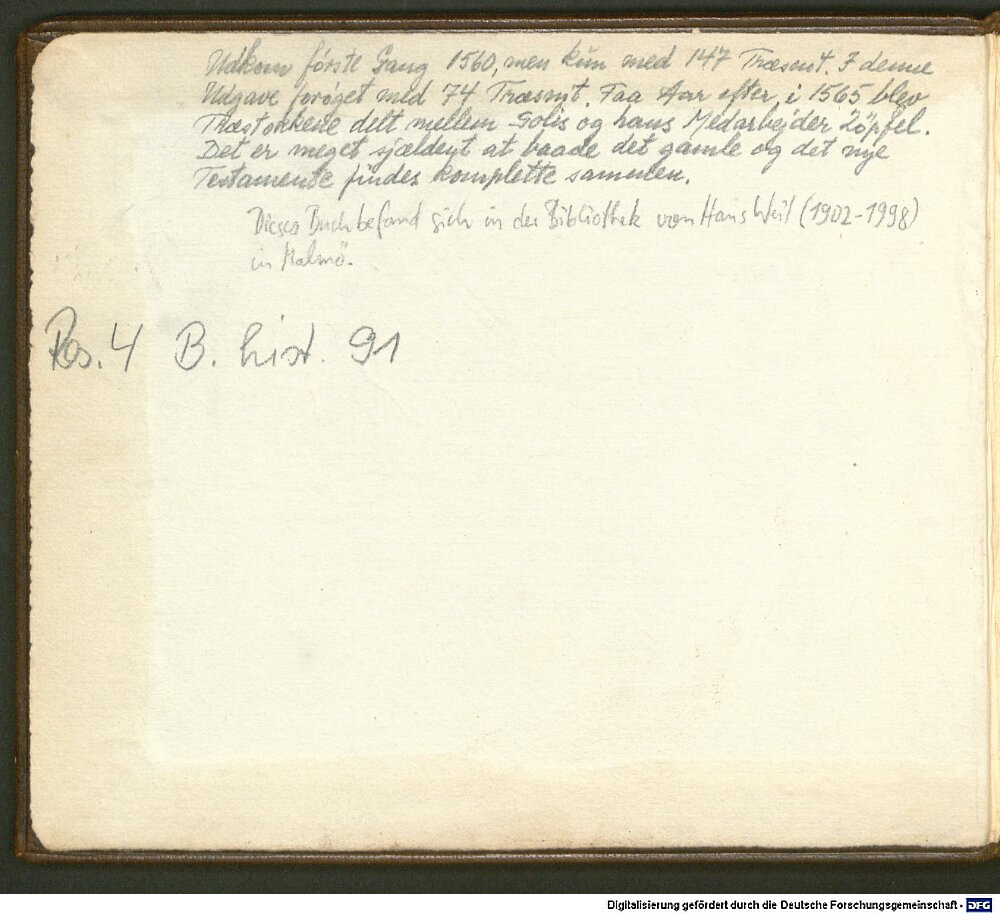 Udkom første Gang 1560, men kun med 147 Træsnit. I denne
Udgave forøget med 74 Træsnit. Faa Aar efter, i 1565 blev
Træstokkene delt mellem Solis og hans Medarbejder Zöpfel.
Det er meget sjældent at baade det gamle og det nye
Testamente findes komplette sammen.
Dieses Buch befand sich in der Bibliothek von Hans Weil (1902-1998)
in Malmö.
Res. 4 B. hist. 91
Digitalisierung gefördert durch die Deutsche Forschungsgemeinschaft - DFG